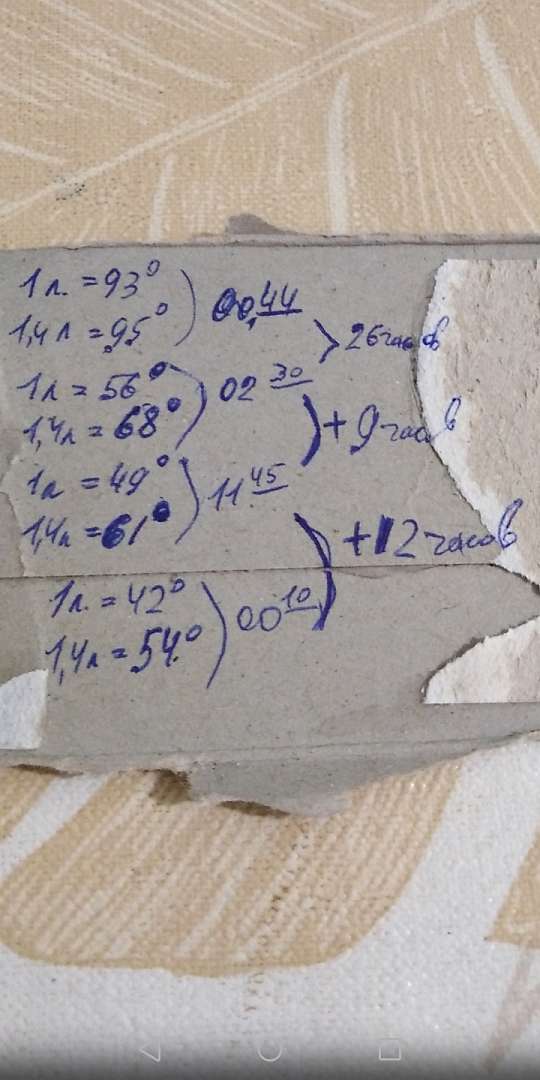 1л. = 93° ) 00,44
1,4л = 95°
> 26 часов
1л = 56° ) 02 30
1,4л = 68°
) + 9 часов
1л = 49° ) 11 45
1,4л = 61°
) + 12 часов
1л. = 42° ) 00 10
1,4л = 54.°